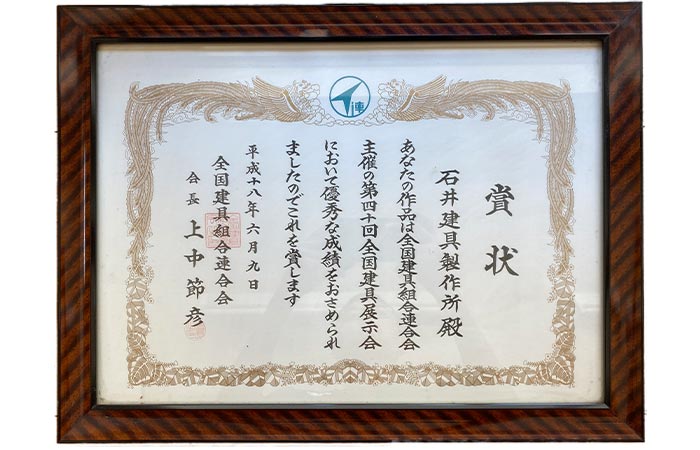 連
賞状
石井建具製作所殿
あなたの作品は全国建具組合連合会
主催の第四十回全国建具展示会
において優秀な成績をおさめられ
ましたのでこれを賞します
平成十八年六月九日
全国建具組合連合会
会長 上中節彦